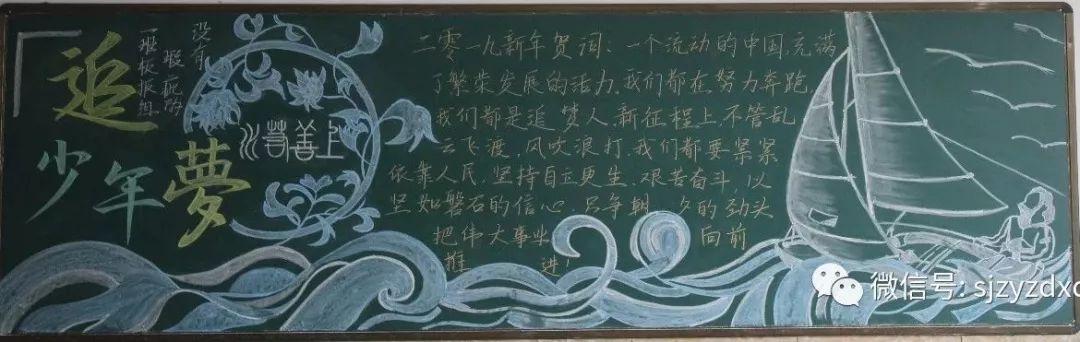 追
少年夢
没有
瑕疵的
一班板报组
上善若水
二零一九新年贺词:一个流动的中国,充满
了繁荣发展的活力.我们都在努力奔跑,
我们都是追梦人.新征程上,不管乱
云飞渡,风吹浪打,我们都要紧紧
依靠人民,坚持自立更生,艰苦奋斗,以
坚如磐石的信心,只争朝夕的劲头
把伟大事业向前
推进!
微信号: sjzyzdxc